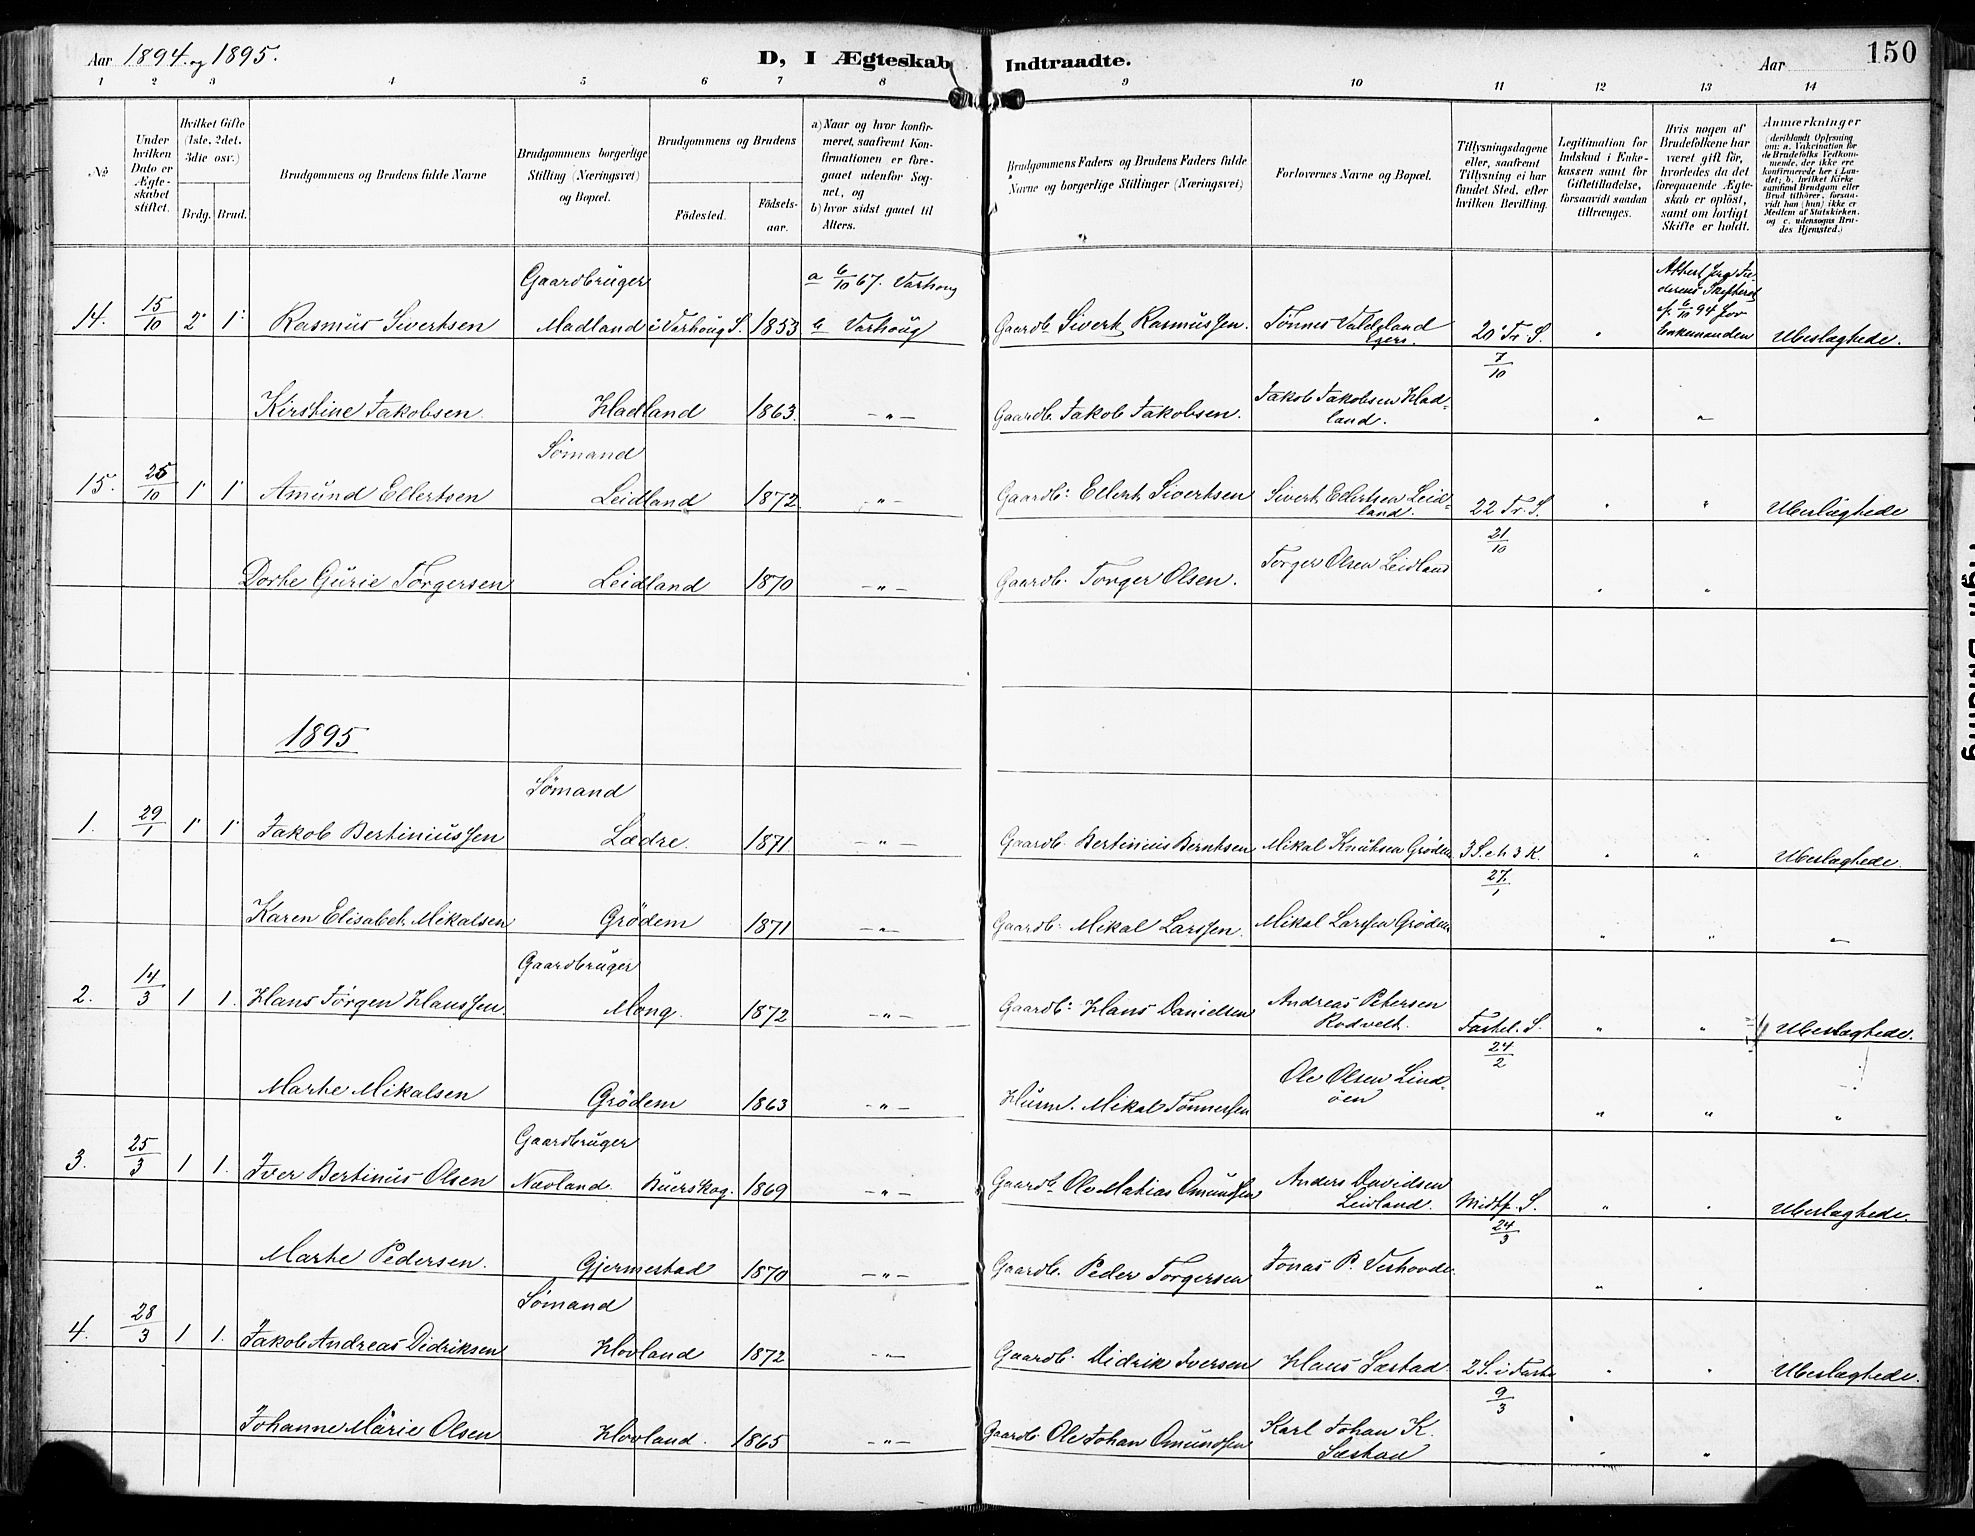 Aar 1894 og 1895.
D, I Ægteskab Indtraadte.
Aar 150
1 2 3 4 5 6 7 8 9 10 11 12 13 14
No
Under hvilken Dato er Ægteskabet stiftet.
Hvilket Gifte (1ste, 2det, 3die osv.)
Brdg. Brud.
Brudgommens og Brudens fulde Navne
Brudgommens borgerlige Stilling (Næringsvei) og Bopæl.
Brudgommens og Brudens
Fødested.
Fødselsaar.
a) Naar og hvor konfirmeret, saafremt Konfirmationen er foregaaet udenfor Sognet, og
b) hvor sidst gaaet til Alters.
Brudgommens Faders og Brudens Faders fulde Navne og borgerlige Stillinger (Næringsvei)
Forlovernes Navne og Bopæl.
Tillysningsdagene eller, saafremt Tillysning ei har fundet Sted, efter hvilken Bevilling.
Legitimation for Indskud i Enkekassen samt for Giftetilladelse, forsaavidt saadan tiltrænges.
Hvis nogen af Brudefolkene har været gift før, hvorledes da det foregaaende Ægteskab er opløst, samt om lovligt Skifte er holdt.
Anmærkninger
(deriblandt Oplysning om: a. Vakcination for de Brudefolks Vedkommende, der ikke ere konfirmerede her i Landet; b. hvilket Kirkesamfund Brudgom eller Brud tilhører, forsaavidt han (hun) ikke er Medlem af Statskirken, og c. udensogns Brudes Hjemsted.)
Gaardbruger a 6/10 67. Varhoug
14. 15/10 2 1 Rasmus Sivertsen Madland i Varhoug S. 1853 b Varhoug Gaardb. Sivert Rasmussen. Tønnes Valdeland Egers. 20 Tr. S. 7/10 " 6/10 94 for Enkemanden Ubeslægtede.
Kirstine Jakobsen Hadland 1863. -"- Gaardb. Jakob Jakobsen. Jakob Jakobsen Hadland. " "
Sømand
15. 25/10 1 1 Amund Ellertsen Leidland 1872 -"- Gaardb: Ellert Sivertsen Sivert Ellertsen Leidland. 22 Tr. S. 21/10 " " Ubeslægtede
Dorthe Gurie Torgersen Leidland 1870 -"- Gaardb. Torger Olsen. Torger Olsen Leidland " "
1895
Sømand
1. 29/1 1 1 Jakob Bertiniussen Lædre. 1871. -"- Gaardb. Bertinius Berntsen Mikal Knutsen Grødem 3 S. e h 3 K. 27/1 " " Ubeslægtede.
Karen Elisabet Mikalsen Grødem 1871 -"- Gaardb: Mikal Larssen. Mikal Larssen Grødem " " "
Gaardbruger
2. 14/3 1 1. Hans Jørgen Hanssen. Mong. 1872 -"- Gaardb: Hans Danielsen Andreas Petersen Rodvelt. Fastel. S. 24/2 " " Ubeslægtede.
Marte Mikalsen Grødem 1863 -"- Husm. Mikal Tønnessen Ole Olsen Lindøen " " "
Gaardbruger
3. 25/3 1 1. Iver Bertinus Olsen Nævland. Buerskog. 1869 -"- Gaardb. Ole Matias Omundsen Anders Davidsen Leidland. Midtf. S. 24/3 " " Ubeslægtede.
Marte Pedersen. Gjermestad 1870 -"- Gaardb. Peder Torgersen Jonas P. Veshovde. " "
Sømand
4. 28/3 1 1. Jakob Andreas Didriksen Hovland 1872 -"- Gaardb. Didrik Iversen Hans Sæstad. 2 S. i Faste 9/3 " " Ubeslægtede.
Johanne Marie Olsen Hovland. 1865 -"- Gaardb. Ole Johan Omundsen Karl Johan K. Sæstad " "